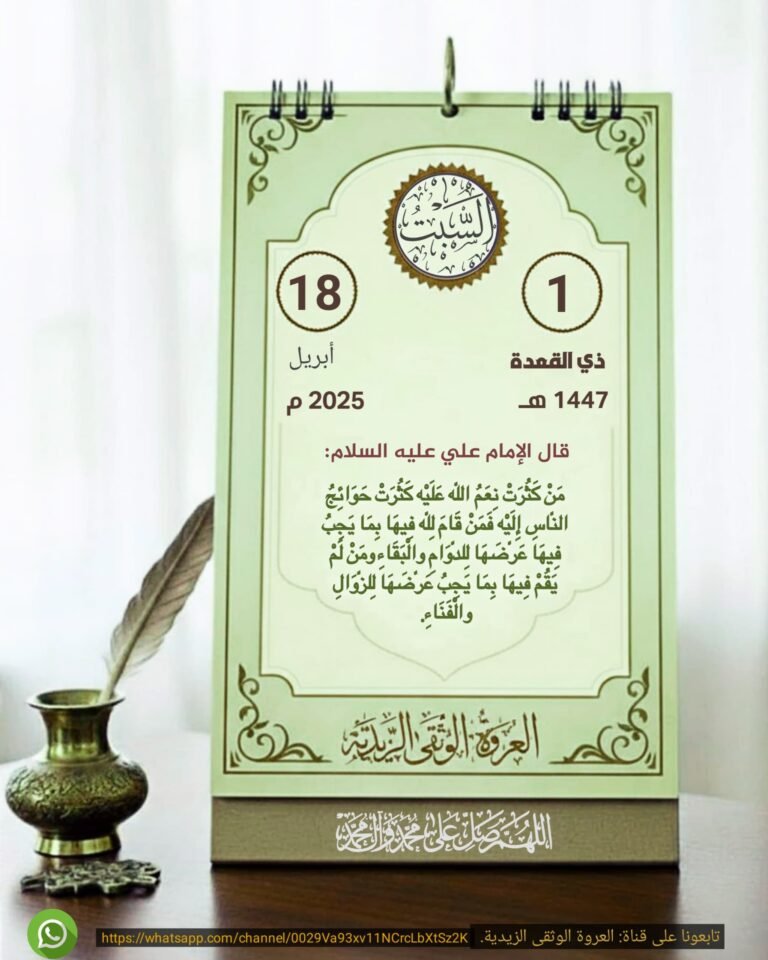 السَّبْتُ
1
18
ذي القعدة
أبريل
1447 هـ
2025 م
قال الإمام علي عليه السلام:
مَنْ كَثُرَتْ نِعَمُ اللّه عَلَيْه كَثُرَتْ حَوَائِجُ
النَّاسِ إِلَيْه فَمَنْ قَامَ لِلّه فيهَا بِمَا يَجِبُ
فِيهَا عَرْضَهَا لِلدَّوَامِ والْبَقَاءِ ومَنْ لَمْ
يَقُمْ فِيهَا بِمَا يَجِبُ عَرْضَهَا لِلزَّوَالِ
والْفَنَاءِ.
العروة الوثقى الزيدية
اللهم صل على محمد وآل محمد
تابعونا على قناة: العروة الوثقى الزيدية. https://whatsapp.com/channel/0029Va93xv11NCrcLbXtSz2K